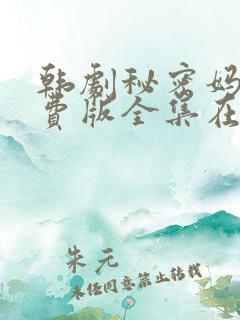 韩剧秘密妈
费版全集在
朱元
未经同意禁止转载